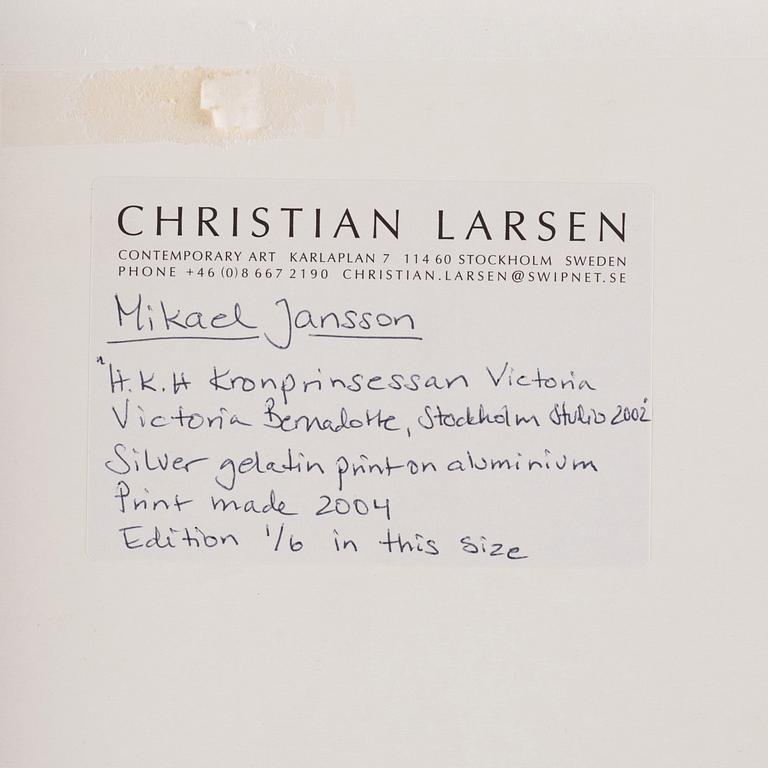 CHRISTIAN LARSEN
CONTEMPORARY ART KARLAPLAN 7 114 60 STOCKHOLM SWEDEN
PHONE +46 (0)8 667 2190 CHRISTIAN.LARSEN@SWIPNET.SE
Mikael Jansson
"H.K.H Kronprinsessan Victoria
Victoria Bernadotte, Stockholm Studio 2002"
Silver gelatin print on aluminium
Print made 2004
Edition 1/6 in this size